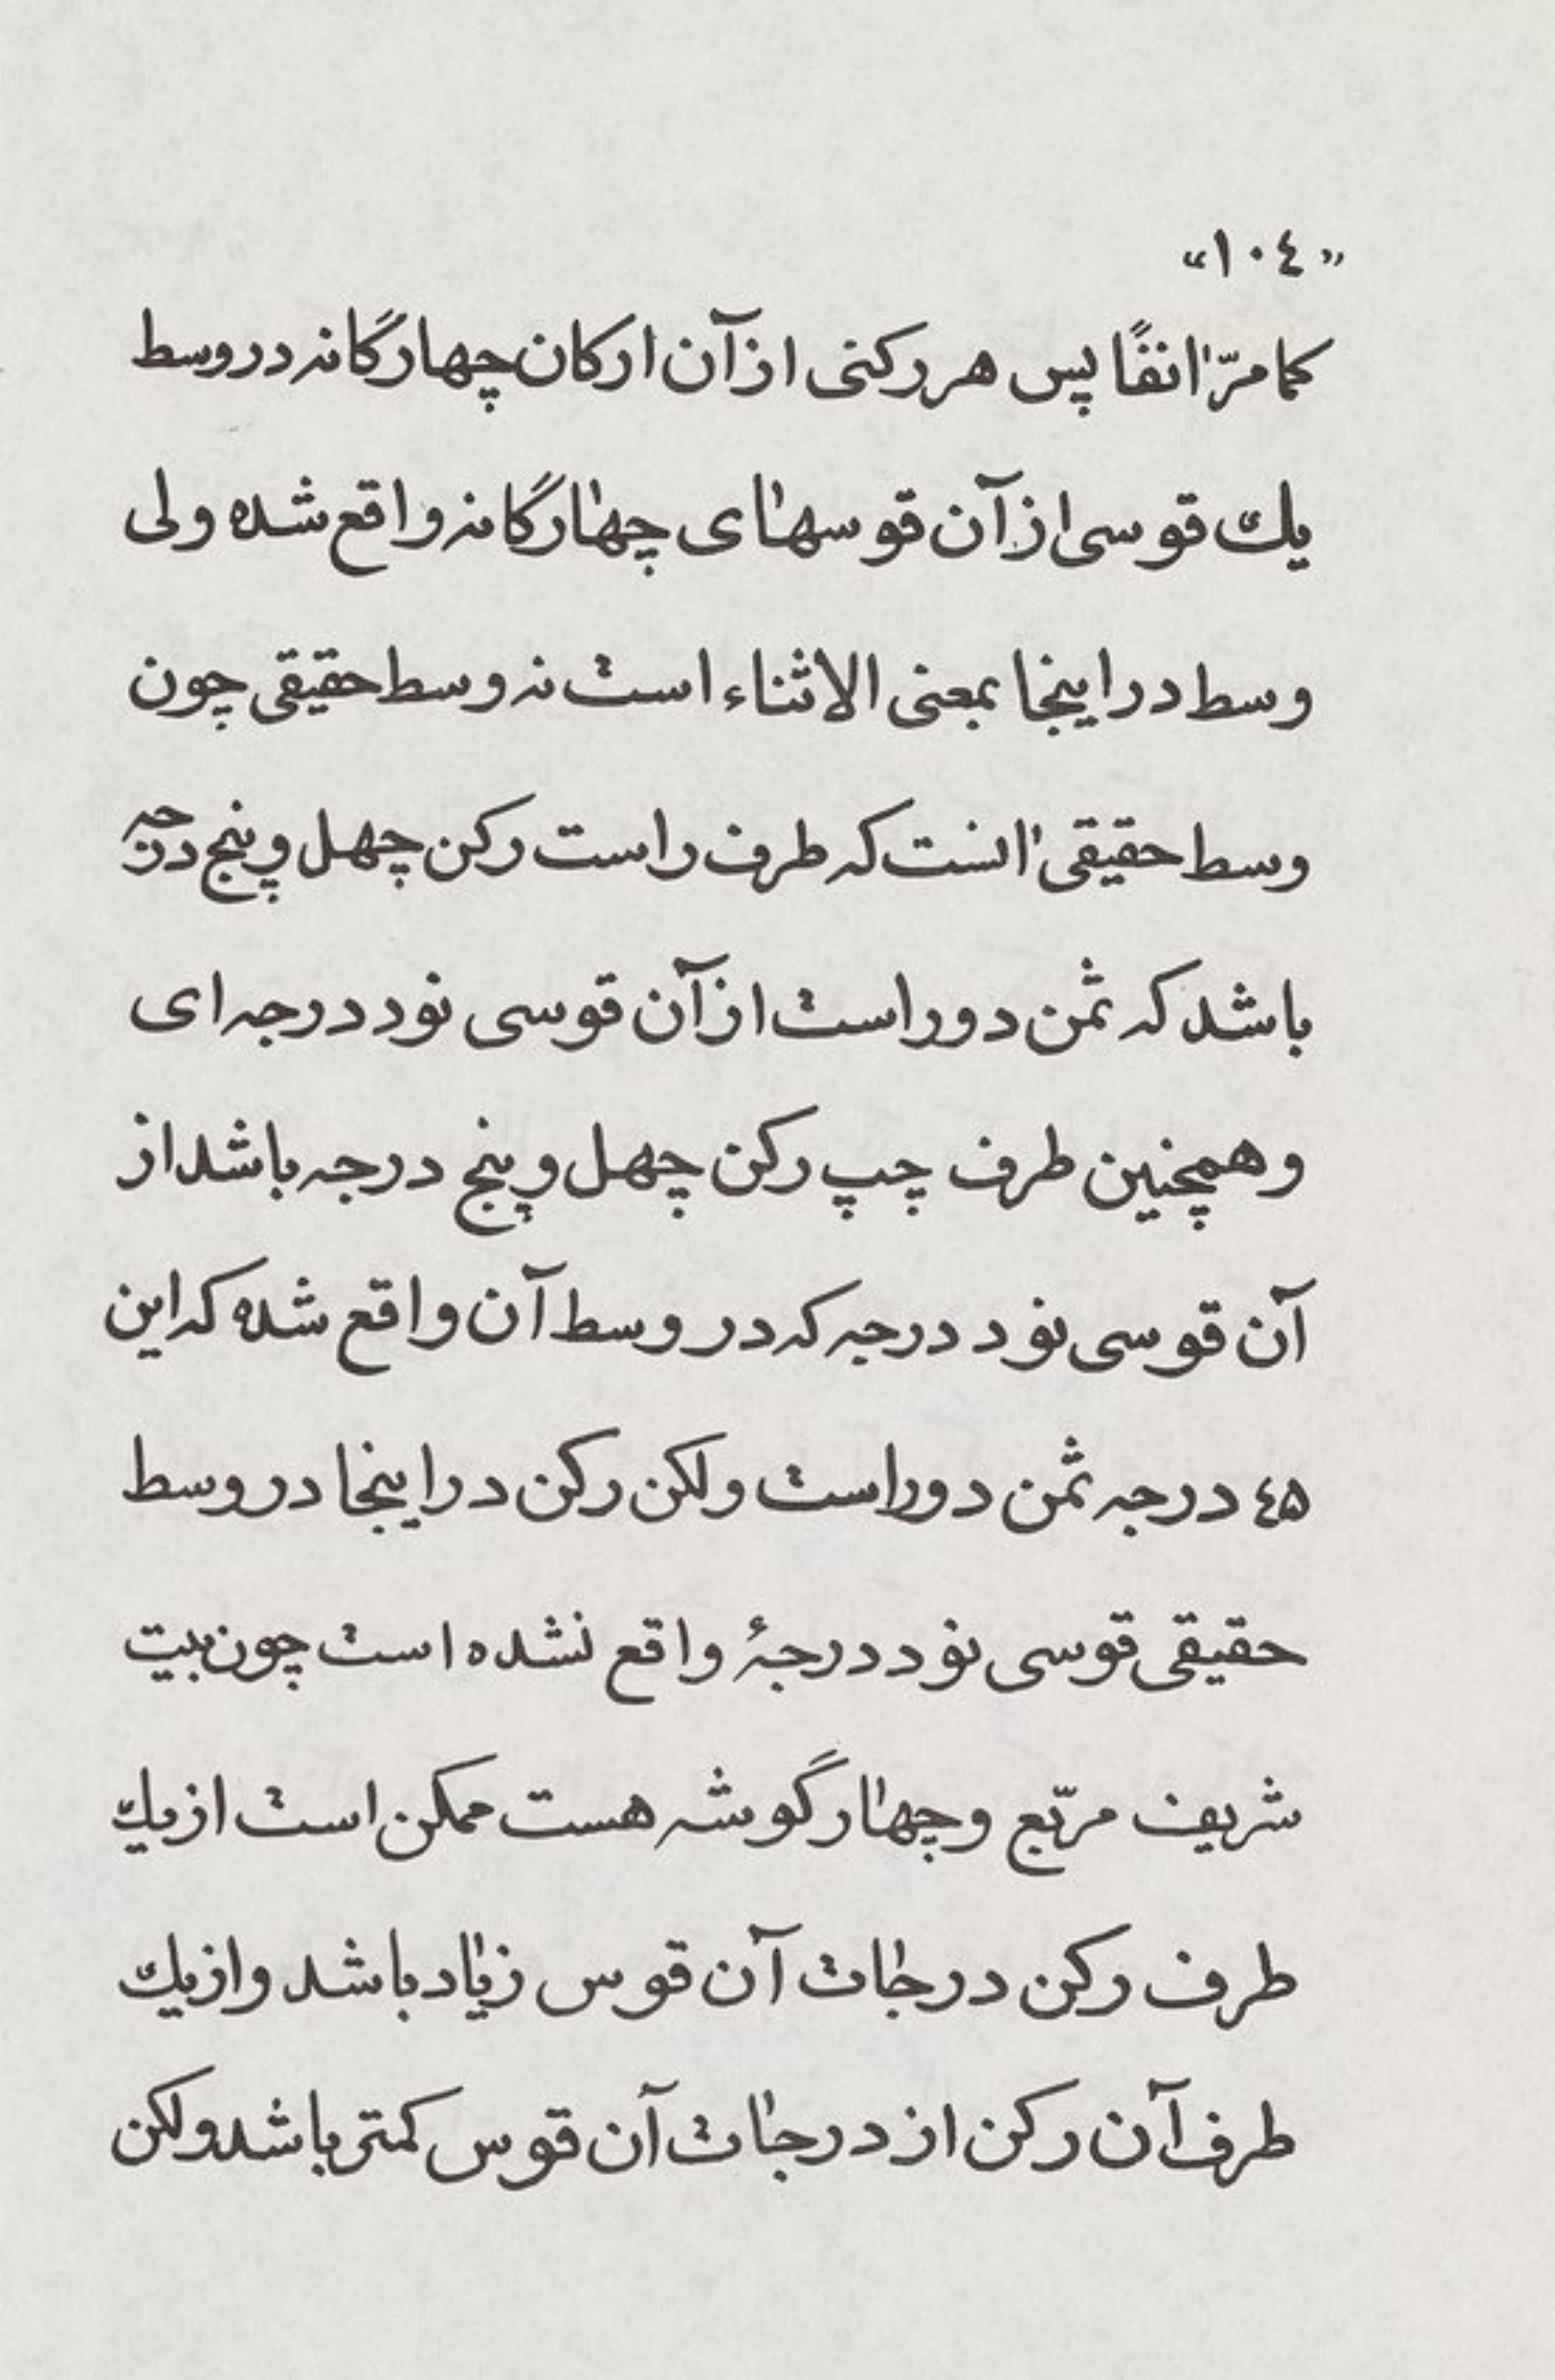 «١٠٤»
كمامرّ اٰنفًا پس هر ركنی از آن اركان چهارگانه در وسط
يك قوسی از آن قوسهٰای چهٰارگانه واقع شده ولی
وسط در اینجا بمعنی الاثناء است نه وسط حقیقی چون
وسط حقیقی اٰنست كه طرف راست ركن چهل و پنج درجه
باشد كه ثمن دور است از آن قوسی نود درجه ای
و همچنین طرف چپ ركن چهل و پنج درجه باشد از
آن قوسی نود درجه كه در وسط آن واقع شده كه این
٤۵ درجه ثمن دور است ولكن ركن در اینجا در وسط
حقیقی قوسی نود درجهٔ واقع نشده است چون بیت
شریف مربّع و چهٰارگوشه هست ممكن است از يك
طرف ركن درجٰات آن قوس زیٰاد باشد و از يك
طرف آن ركن از درجٰات آن قوس كمتر باشد ولكن